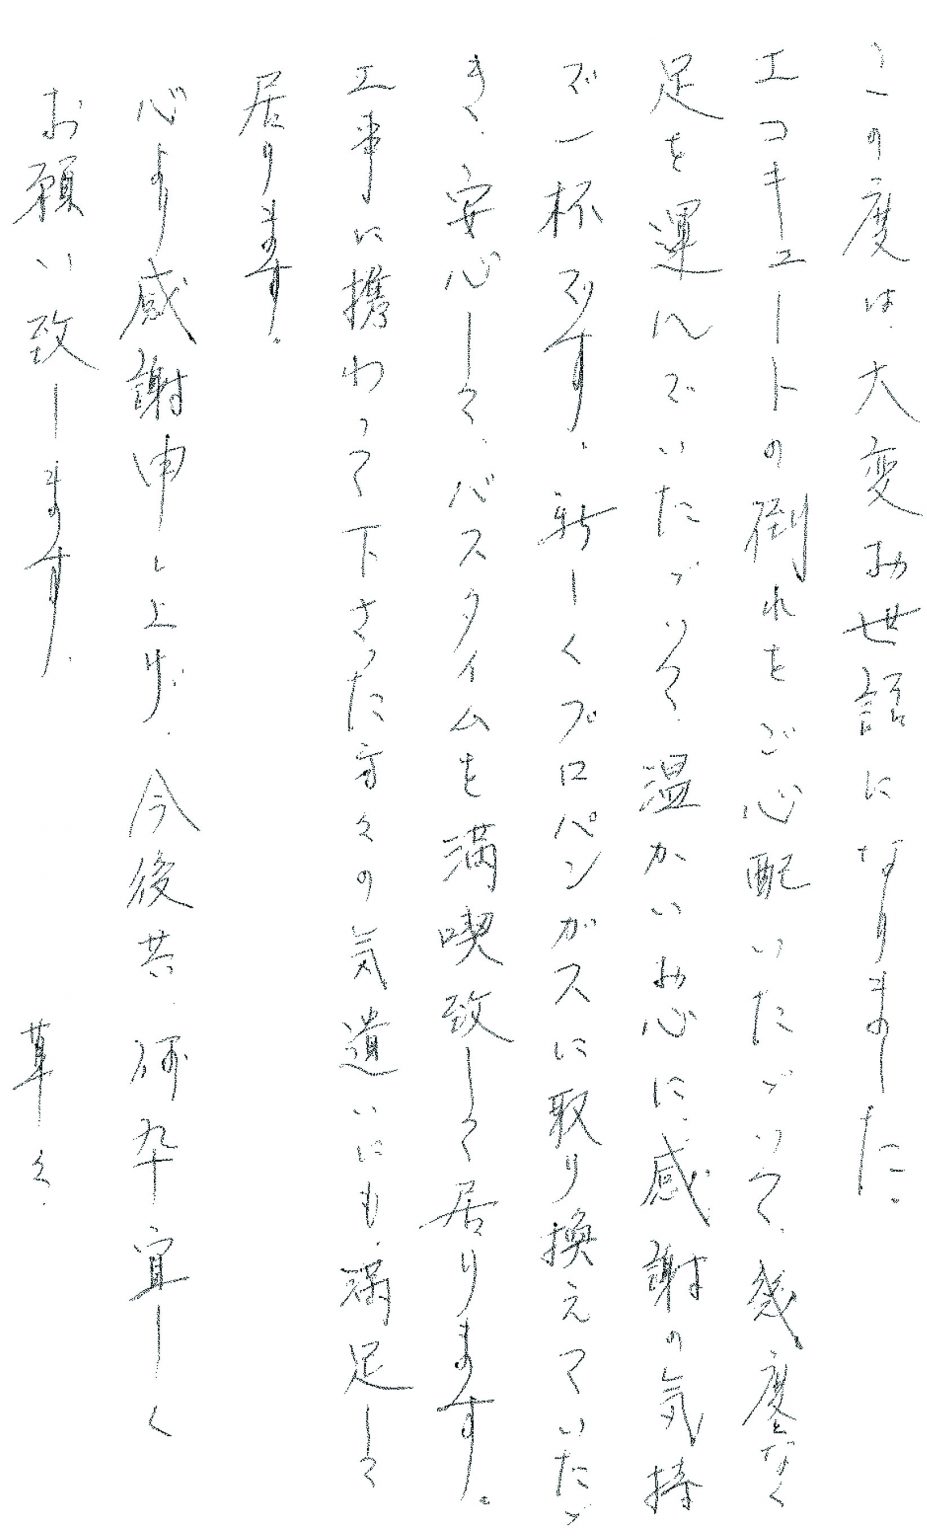 この度は、大変お世話になりました。
エコキュートの倒れをご心配いたゞいて、幾度となく
足を運んでいたゞいて、温かいお心に、感謝の気持
で一杯です。新しくプロパンガスに取り換えていたゞ
き、安心して、バスタイムを満喫致して居ります。
工事に携わって下さった方々の気遣いにも、満足して
居ります。
心より感謝申し上げ、今後共、何卒宜しく
お願い致します。
草々